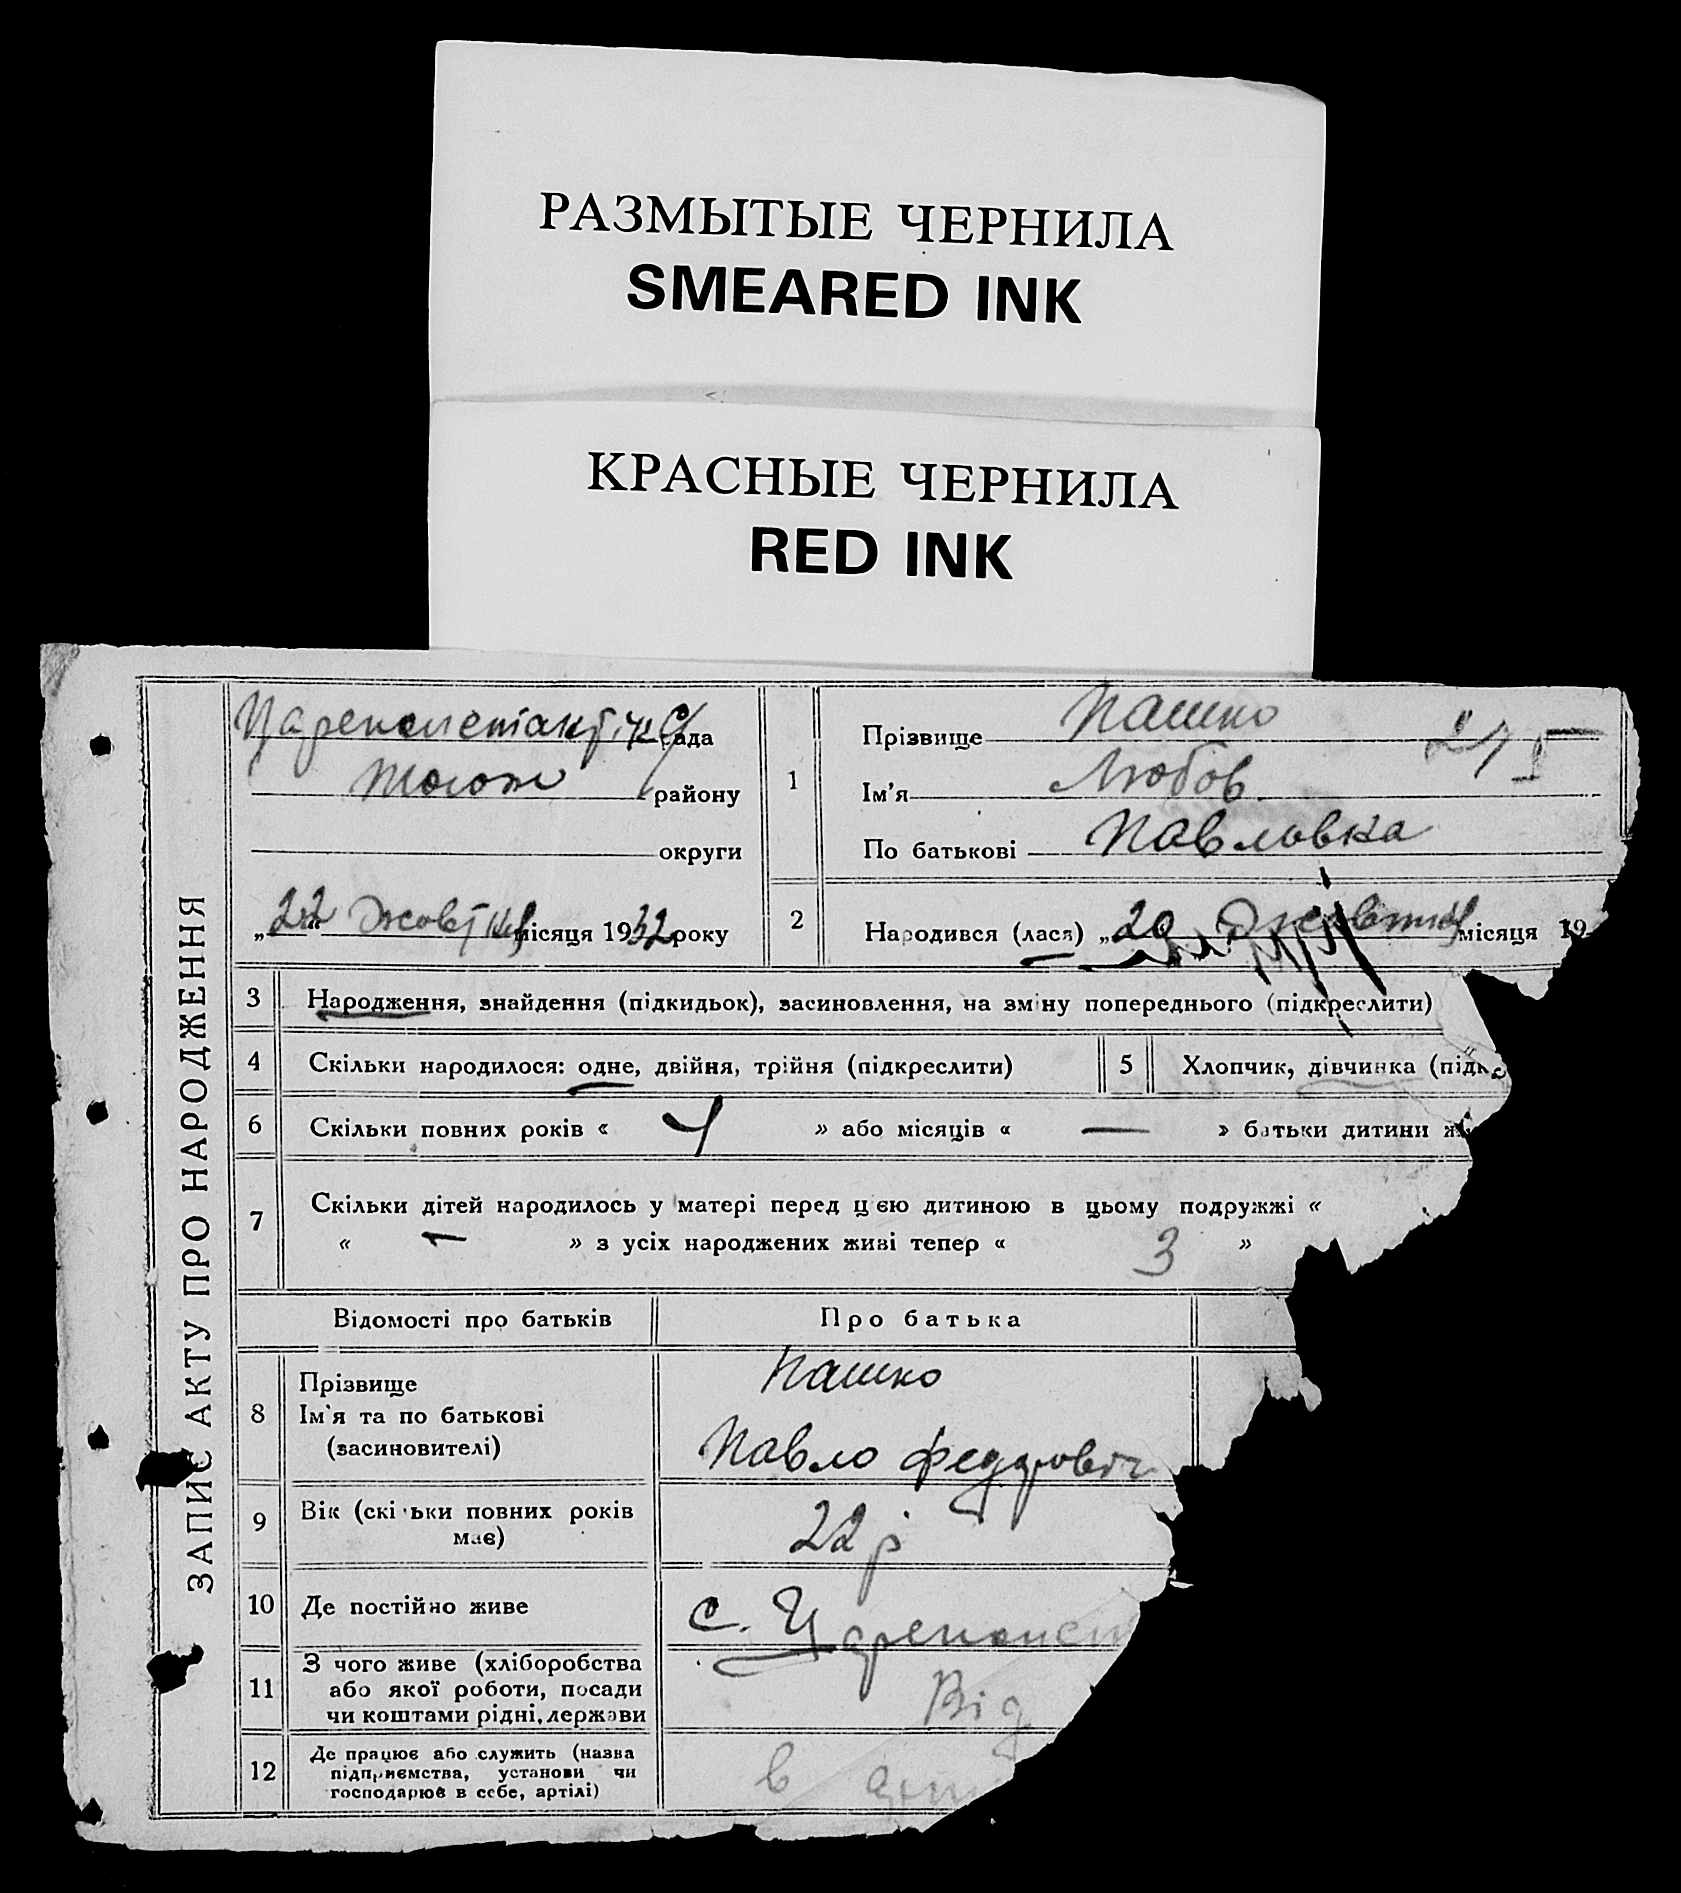 РАЗМЫТЫЕ ЧЕРНИЛА
SMEARED INK
КРАСНЫЕ ЧЕРНИЛА
RED INK
ЗАПИС АКТУ ПРО НАРОДЖЕННЯ
рада
району
округи
„22“ Жовтня місяця 1932 року
1
Прізвище Пашко
Ім'я Любов
По батькові Павловна
2
Народився (лася) „20 Жовтня місяця 19
3 Народження, знайдення (підкидьок), засиновлення, на зміну попереднього (підкреслити)
4 Скільки народилося: одне, двійня, трійня (підкреслити) 5 Хлопчик, дівчинка (підк
6 Скільки повних років « 4 » або місяців « — » батьки дитини
7 Скільки дітей народилось у матері перед цією дитиною в цьому подружжі «
« — » з усіх народжених живі тепер « 3 »
Відомості про батьків Про батька
8 Прізвище Пашко
Ім'я та по батькові
(засиновителі) Павло Федорович
9 Вік (скільки повних років має) 22 р
10 Де постійно живе с.
11 З чого живе (хліборобства
або якої роботи, посади
чи коштами рідні, держави
Від
12 Де працює або служить (назва
підприємства, установи чи
господарює в себе, артілі)
в